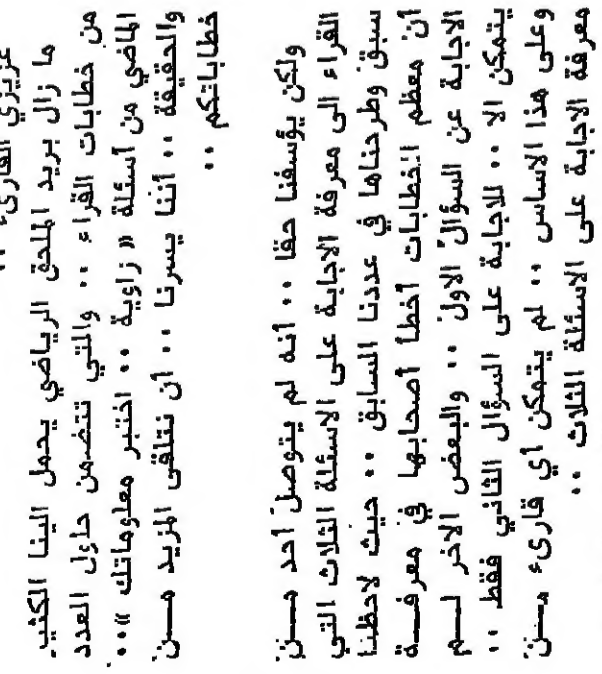 عزيزي القارىء ..
ما زال بريد الملحق الرياضي يحمل الينا الكثير
من خطابات القراء .. والتي تتضمن حلول العدد
الماضي من أسئلة « زاوية .. اختبر معلوماتك » ..
والحقيقة .. أننا يسرنا .. أن نتلقى المزيد مــن
خطاباتكم ..
ولكن يؤسفنا حقا .. أنه لم يتوصل أحد مــن
القراء الى معرفة الاجابة على الاسئلة الثلاث التي
سبق وطرحناها في عددنا السابق .. حيث لاحظنا
أن معظم الخطابات أخطأ أصحابها في معرفــة
الاجابة عن السؤال الاول .. والبعض الاخر لــم
يتمكن الا .. للاجابة على السؤال الثاني فقط ..
وعلى هذا الاساس .. لم يتمكن أي قارىء مــن
معرفة الاجابة على الاسئلة الثلاث ..